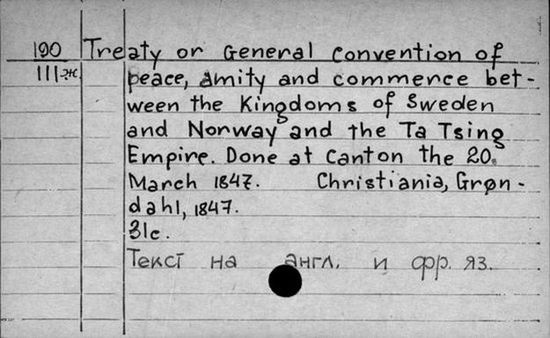 190 Treaty or General Convention of
III-ж. peace, amity and commerce bet-
ween the Kingdoms of Sweden
and Norway and the Ta Tsing
Empire. Done at Canton the 20.
March 1847. Christiania, Grøn-
dahl, 1847.
31c.
Текст на англ. и фр. яз.